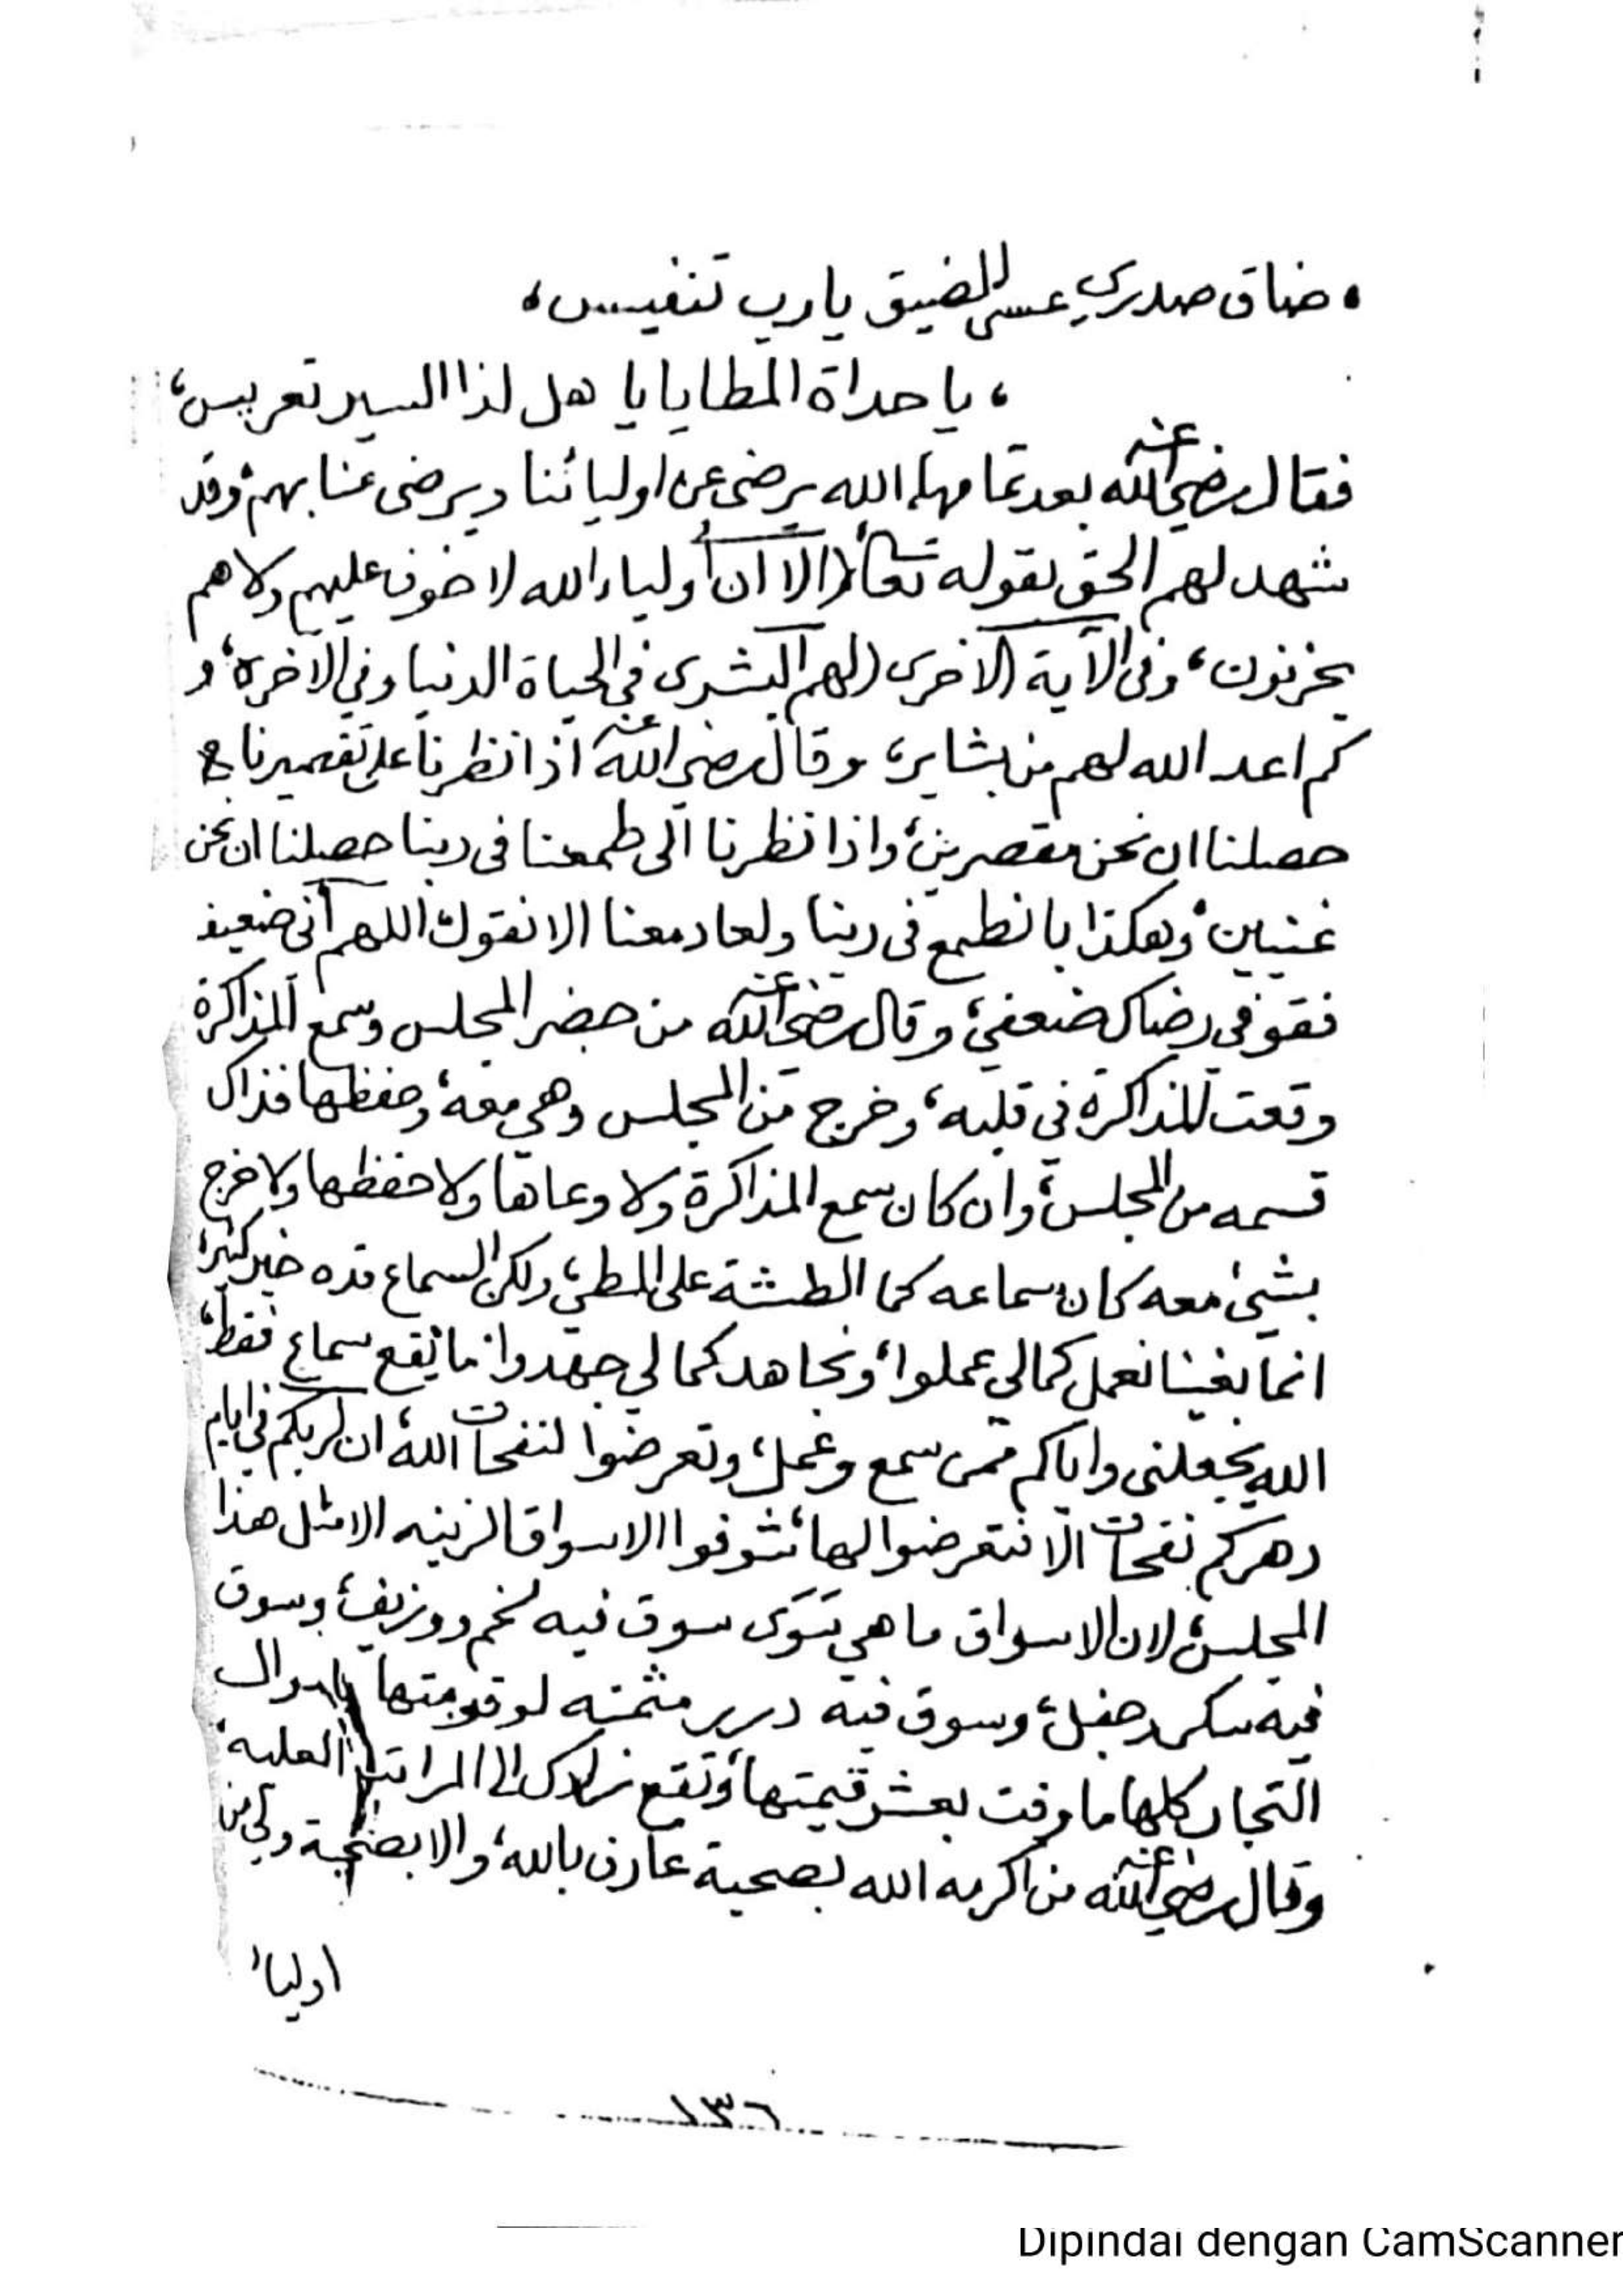 ، ضاق صدري عسى للضيق يارب تنفيس ،
، يا حداة المطايا يا هل لذا السير تعريس ،
فقال رضي الله عنه بعد تمامها، الله يرضى عن اوليائنا ويرضى عنا بهم، وقد
شهد لهم الحق بقوله تعالى (الا ان أولياء الله لا خوف عليهم ولا هم
يحزنون، وفي الآية الاخرى (لهم البشرى في الحياة الدنيا وفي الاخرة، و
كم اعد الله لهم من بشاير، وقال رضي الله عنه اذا نظرنا على تقصيرنا
حصلنا ان نحن مقصرين، واذا نظرنا الى طمعنا في ربنا حصلنا ان نحن
غنيين، وهكذا با نطمع في ربنا ولعاد معنا الا نقول اللهم اني ضعيف
فقو في رضاك ضعفي، وقال رضي الله عنه من حضر المجلس وسمع المذاكرة
وقعت المذاكرة في قلبه، وخرج من المجلس وهي معه، وحفظها فذاك
قسمه من المجلس، وان كان سمع المذاكرة ولا وعاها ولا حفظها ولا خرج
بشيئ معه كان سماعه كما الطشة على المطي، ولكن السماع قده خير كثير،
انما بغينا نعمل كما لي عملوا، ونجاهد كما لي جهدوا، ما يقع سماع فقط،
الله يجعلني واياكم ممن سمع وعمل، وتعرضوا لنفحات الله، ان لربكم في ايام
دهركم نفحات الا فتعرضوا لها، شوفوا الاسواق الزينه الا مثل هذا
المجلس، لان الاسواق ما هي سَوَى سوق فيه لخم ووزيف، وسوق
فيه سكر وحفل، وسوق فيه درر مثمنه لو قومتها باموال
التجار كلها ما وفت بعشر قيمتها، وتقع نزلاك الى المراتب العليه،
وقال رضي الله عنه من اكرمه الله بصحبة عارف بالله، والا بصحبة ولي من
اولياء
١٣٦
Dipindai dengan CamScanner